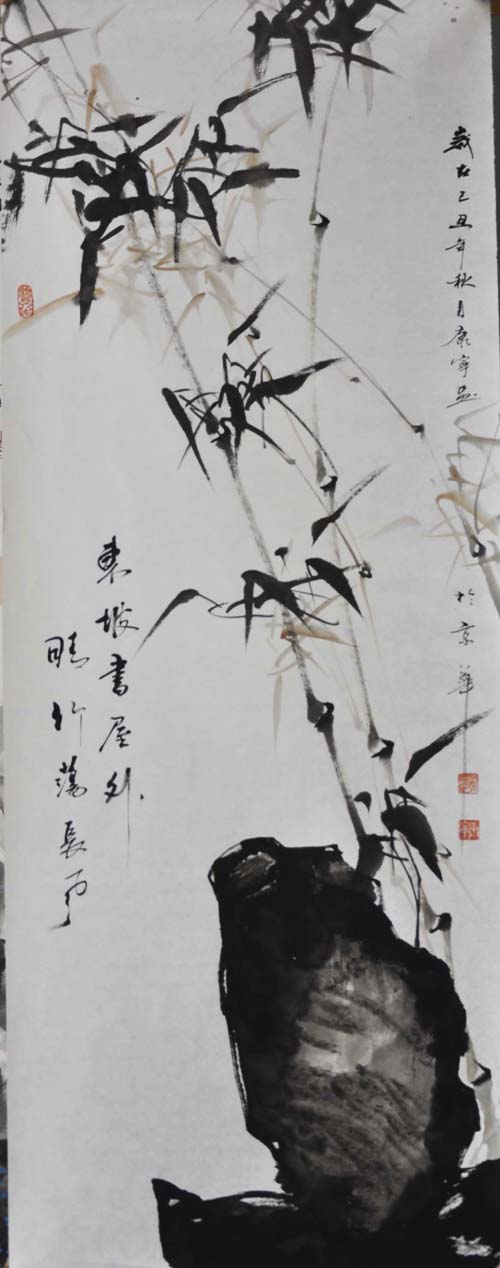 歲在己丑年秋月康寧画
於京華
東坡書屋外
晴竹蕩長